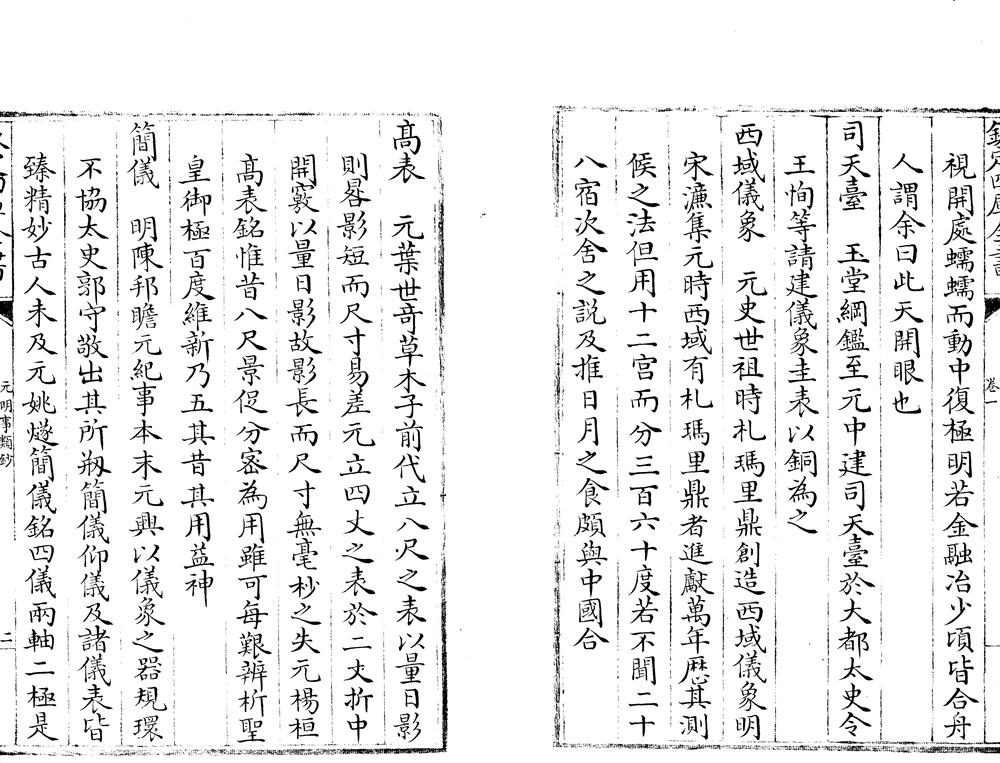 欽定四庫全書
卷一
視開處蠕蠕而動中復極明若金融冶少頃皆合舟
人謂余曰此天開眼也
司天臺　玉堂綱鑑至元中建司天臺於大都太史令
王恂等請建儀象圭表以銅為之
西域儀象　元史世祖時札瑪里鼎創造西域儀象明
宋濂集元時西域有札瑪里鼎者進獻萬年厯其測
候之法但用十二宮而分三百六十度若不聞二十
八宿次舍之説及推日月之食頗與中國合
髙表　元葉世竒草木子前代立八尺之表以量日影
則晷影短而尺寸易差元立四丈之表於二丈折中
開竅以量日影故影長而尺寸無毫杪之失元楊桓
髙表銘惟昔八尺景促分宻為用雖可每艱辨析聖
皇御極百度維新乃五其昔其用益神
簡儀　明陳邦瞻元紀事本末元興以儀象之器規環
不協太史郭守敬出其所剏簡儀仰儀及諸儀表皆
臻精妙古人未及元姚燧簡儀銘四儀兩軸二極是
元明事類鈔
二